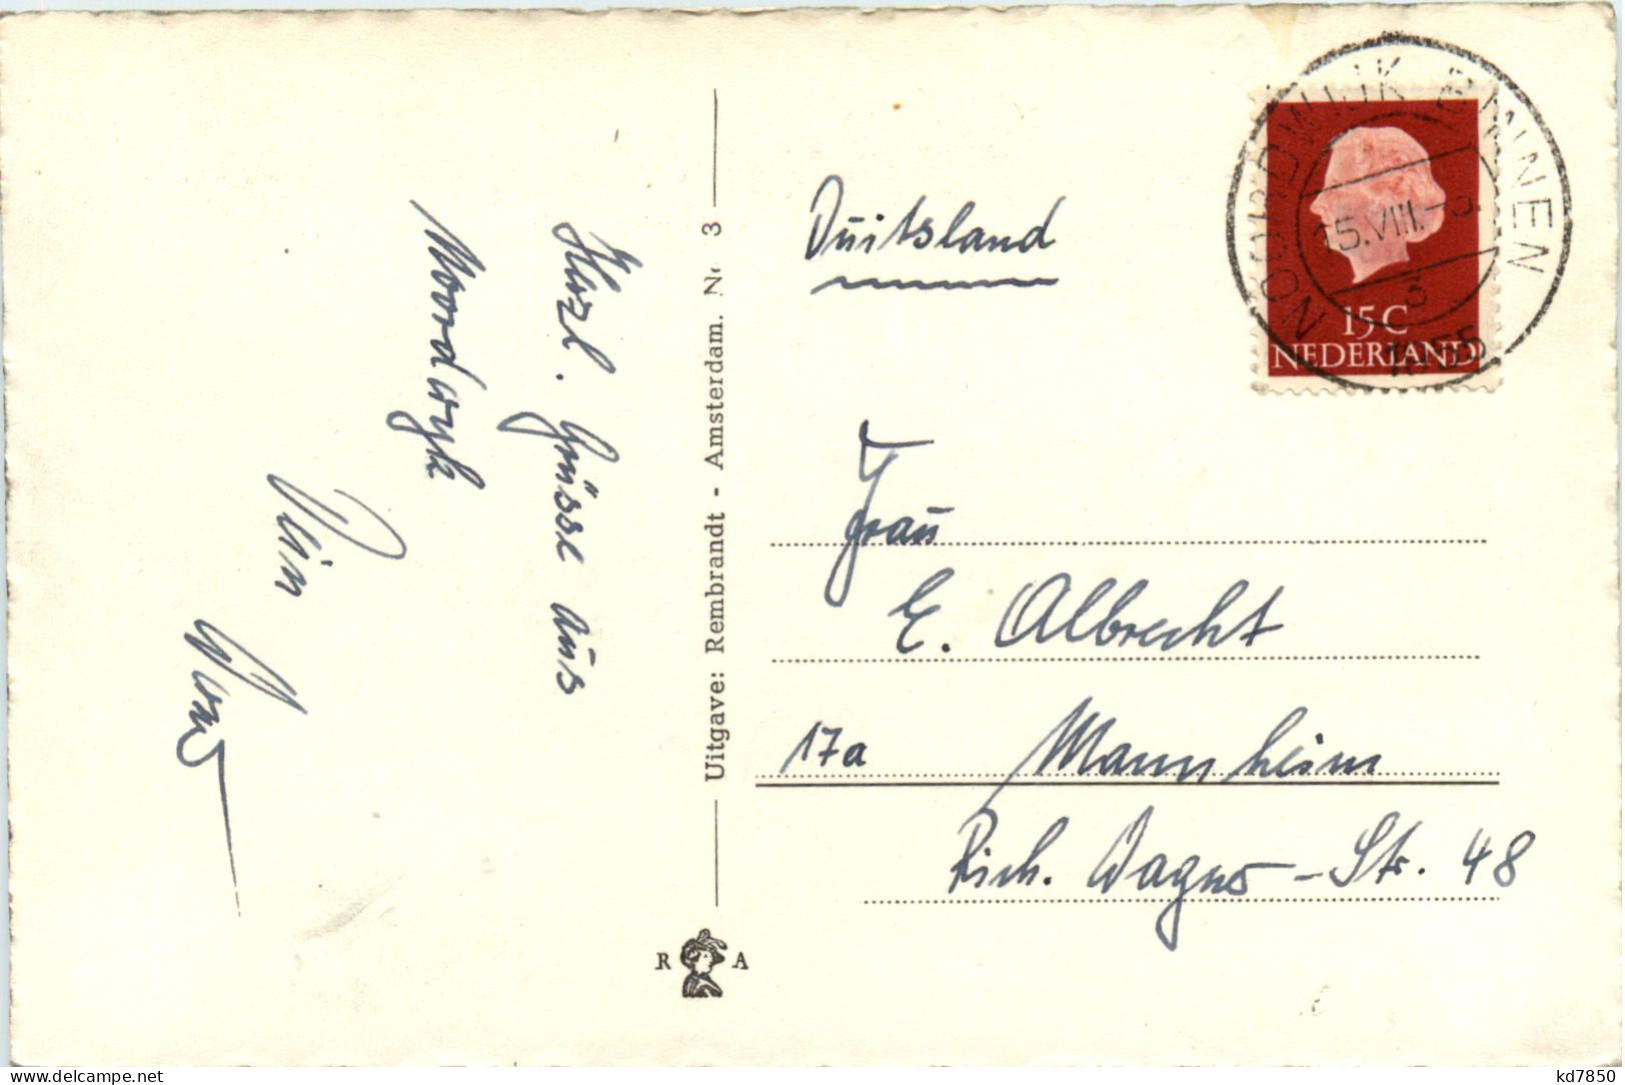 Herzl. Grüsse aus
Noordwyk
Dein
Uitgave: Rembrandt - Amsterdam. Nr 3
R A
Duitsland
NOORDWIJK BINNEN
15.VIII.
1955
15 C
NEDERLAND
Frau
E. Albrecht
17a Mannheim
Rich. Wagner-Str. 48
www.delcampe.net
kd7850